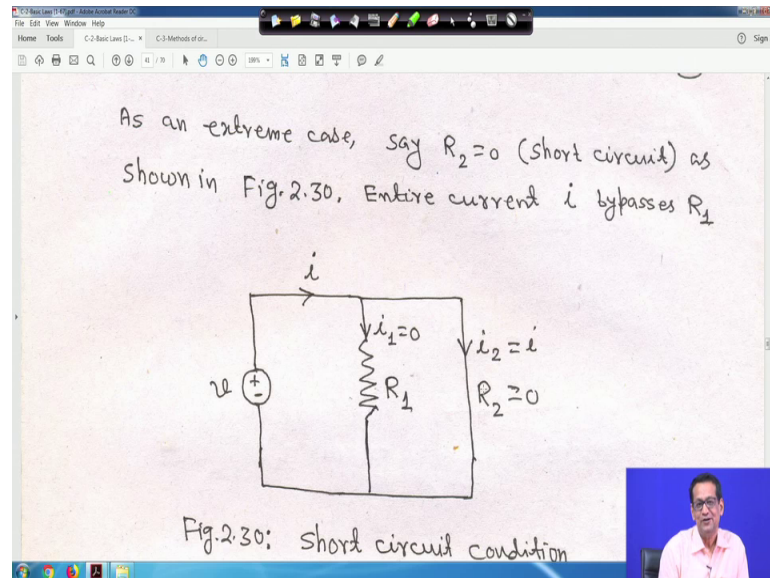 C-2-Basic Laws [1-67].pdf - Adobe Acrobat Reader DC
File Edit View Window Help
Home Tools C-2-Basic Laws [1-... × C-3-Methods of cir... Sign
41 / 70
As an extreme case, say R₂=0 (short circuit) as
shown in Fig. 2.30, Entire current i bypasses R₁
i
i₁=0
i₂ = i
v + - R₁ R₂=0
Fig.2.30: Short circuit condition